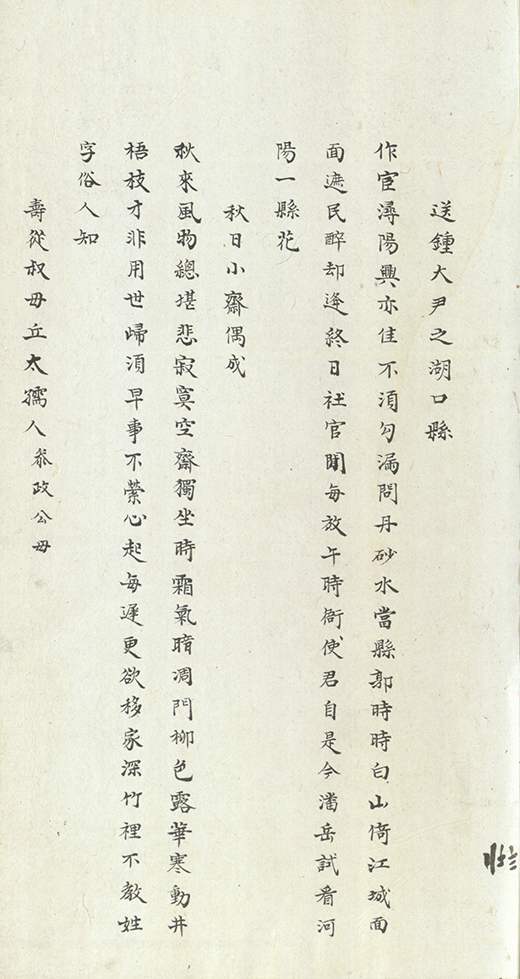 送鍾大尹之湖口縣
作宦潯陽興亦佳不須勾漏問丹砂水當縣郭時時白山倚江城面
面遮民醉却逢終日社官閒每放午時衙使君自是今潘岳試看河
陽一縣花
秋日小齋偶成
秋來風物總堪悲寂寞空齋獨坐時霜氣暗凋門柳色露華寒動井
梧枝才非用世歸須早事不縈心起每遲更欲移家深竹裡不教姓
字俗人知
壽從叔母丘太孺人叅政公母